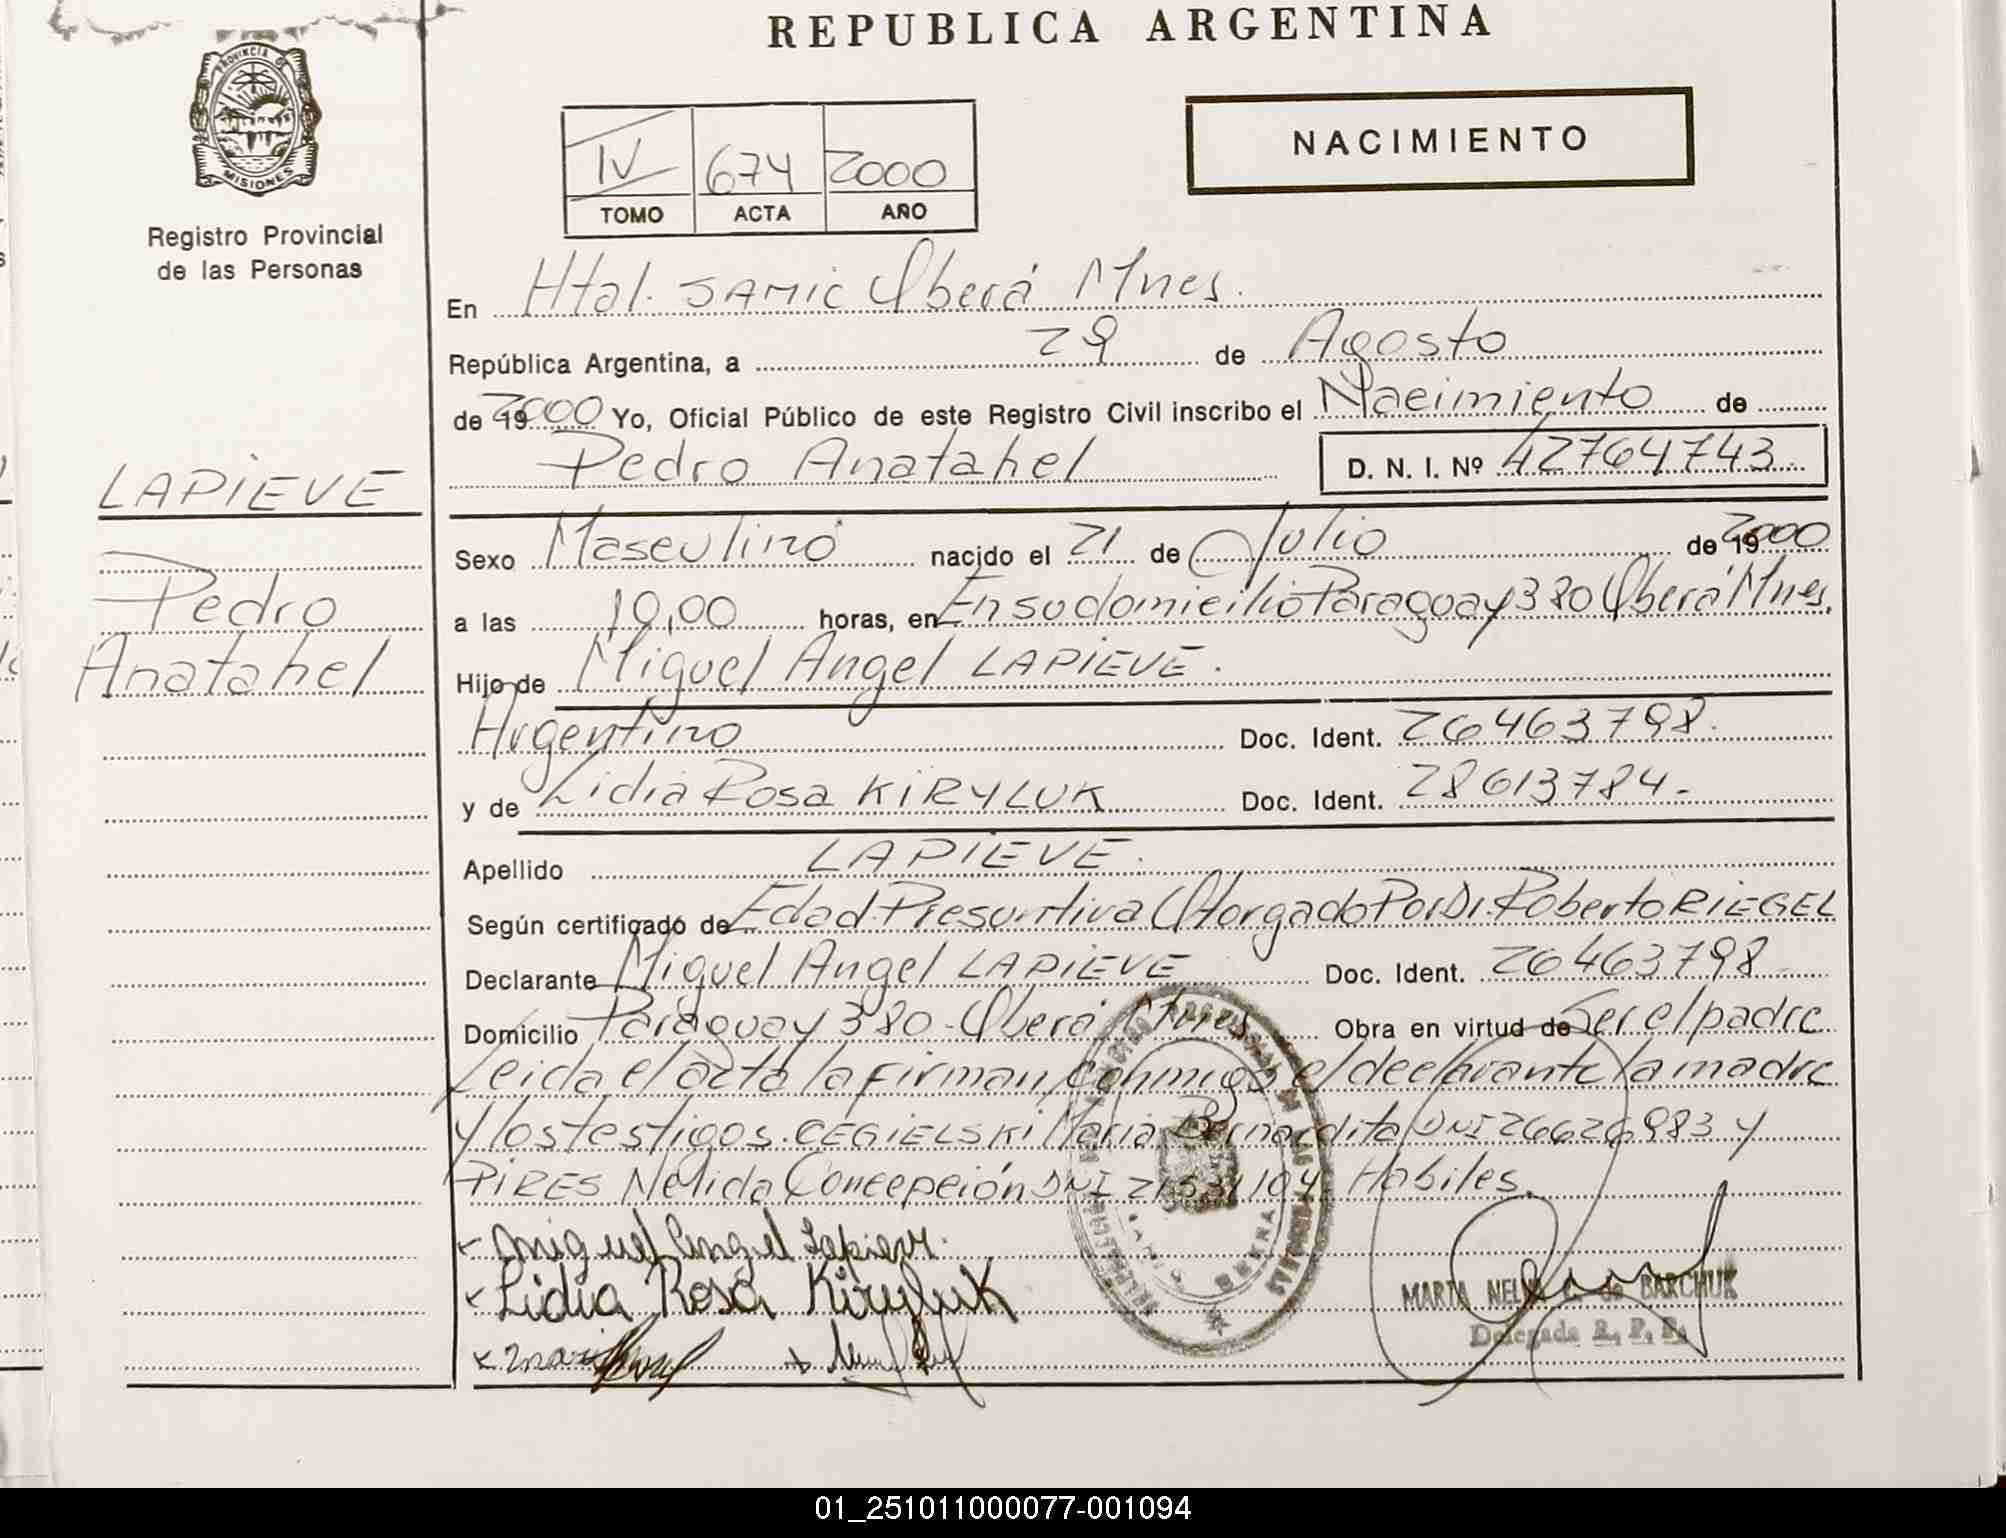 REPUBLICA ARGENTINA
PROVINCIA DE
MISIONES
Registro Provincial
de las Personas
NACIMIENTO
IV 674 2000
TOMO ACTA AÑO
En Htal. SAMIC Oberá Mnes.
República Argentina, a 29 de Agosto
de 19 2000 Yo, Oficial Público de este Registro Civil inscribo el Nacimiento de
Pedro Anatahel D. N. I. Nº 42764743.
LAPIEVE
Pedro
Anatahel
Sexo Masculino nacido el 21 de Julio de 19 2000
a las 10,00 horas, en En su domicilio Paraguay 380 Oberá Mnes.
Hijo de Miguel Angel LAPIEVE.
Argentino Doc. Ident. 26463798.
y de Lidia Rosa KIRYLUK Doc. Ident. 28613784.-
Apellido LAPIEVE.
Según certificado de Edad Presuntiva Otorgado Por Dr. Roberto RIEGEL
Declarante Miguel Angel LAPIEVE Doc. Ident. 26463798
Domicilio Paraguay 380 - Oberá Mnes Obra en virtud de Ser el padre
Leida el acta la firman conmigo el declarante la madre
y los testigos. CEGIELSKI Maria Bernardita DNI 26626983 y
PIRES Nelida Concepción DNI Habiles.
Miguel Angel Lapieve.
Lidia Rosa Kiryluk
MARTA BARCHUK
Delegada R. P. P.
01_251011000077-001094